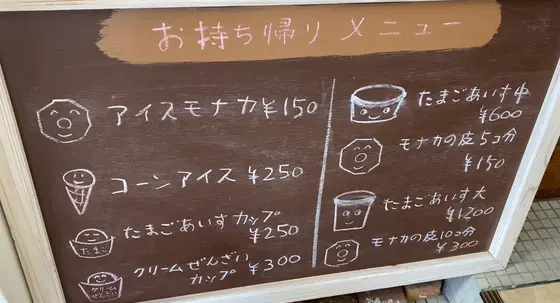 お持ち帰りメニュー
アイスモナカ¥150
コーンアイス¥250
たまごあいすカップ
¥250
たまご
クリームぜんざい
カップ ¥300
クリーム
ぜんざい
たまごあいす中
¥600
モナカの皮5コ分
¥150
たまごあいす大
¥1200
モナカの皮10コ分
¥300